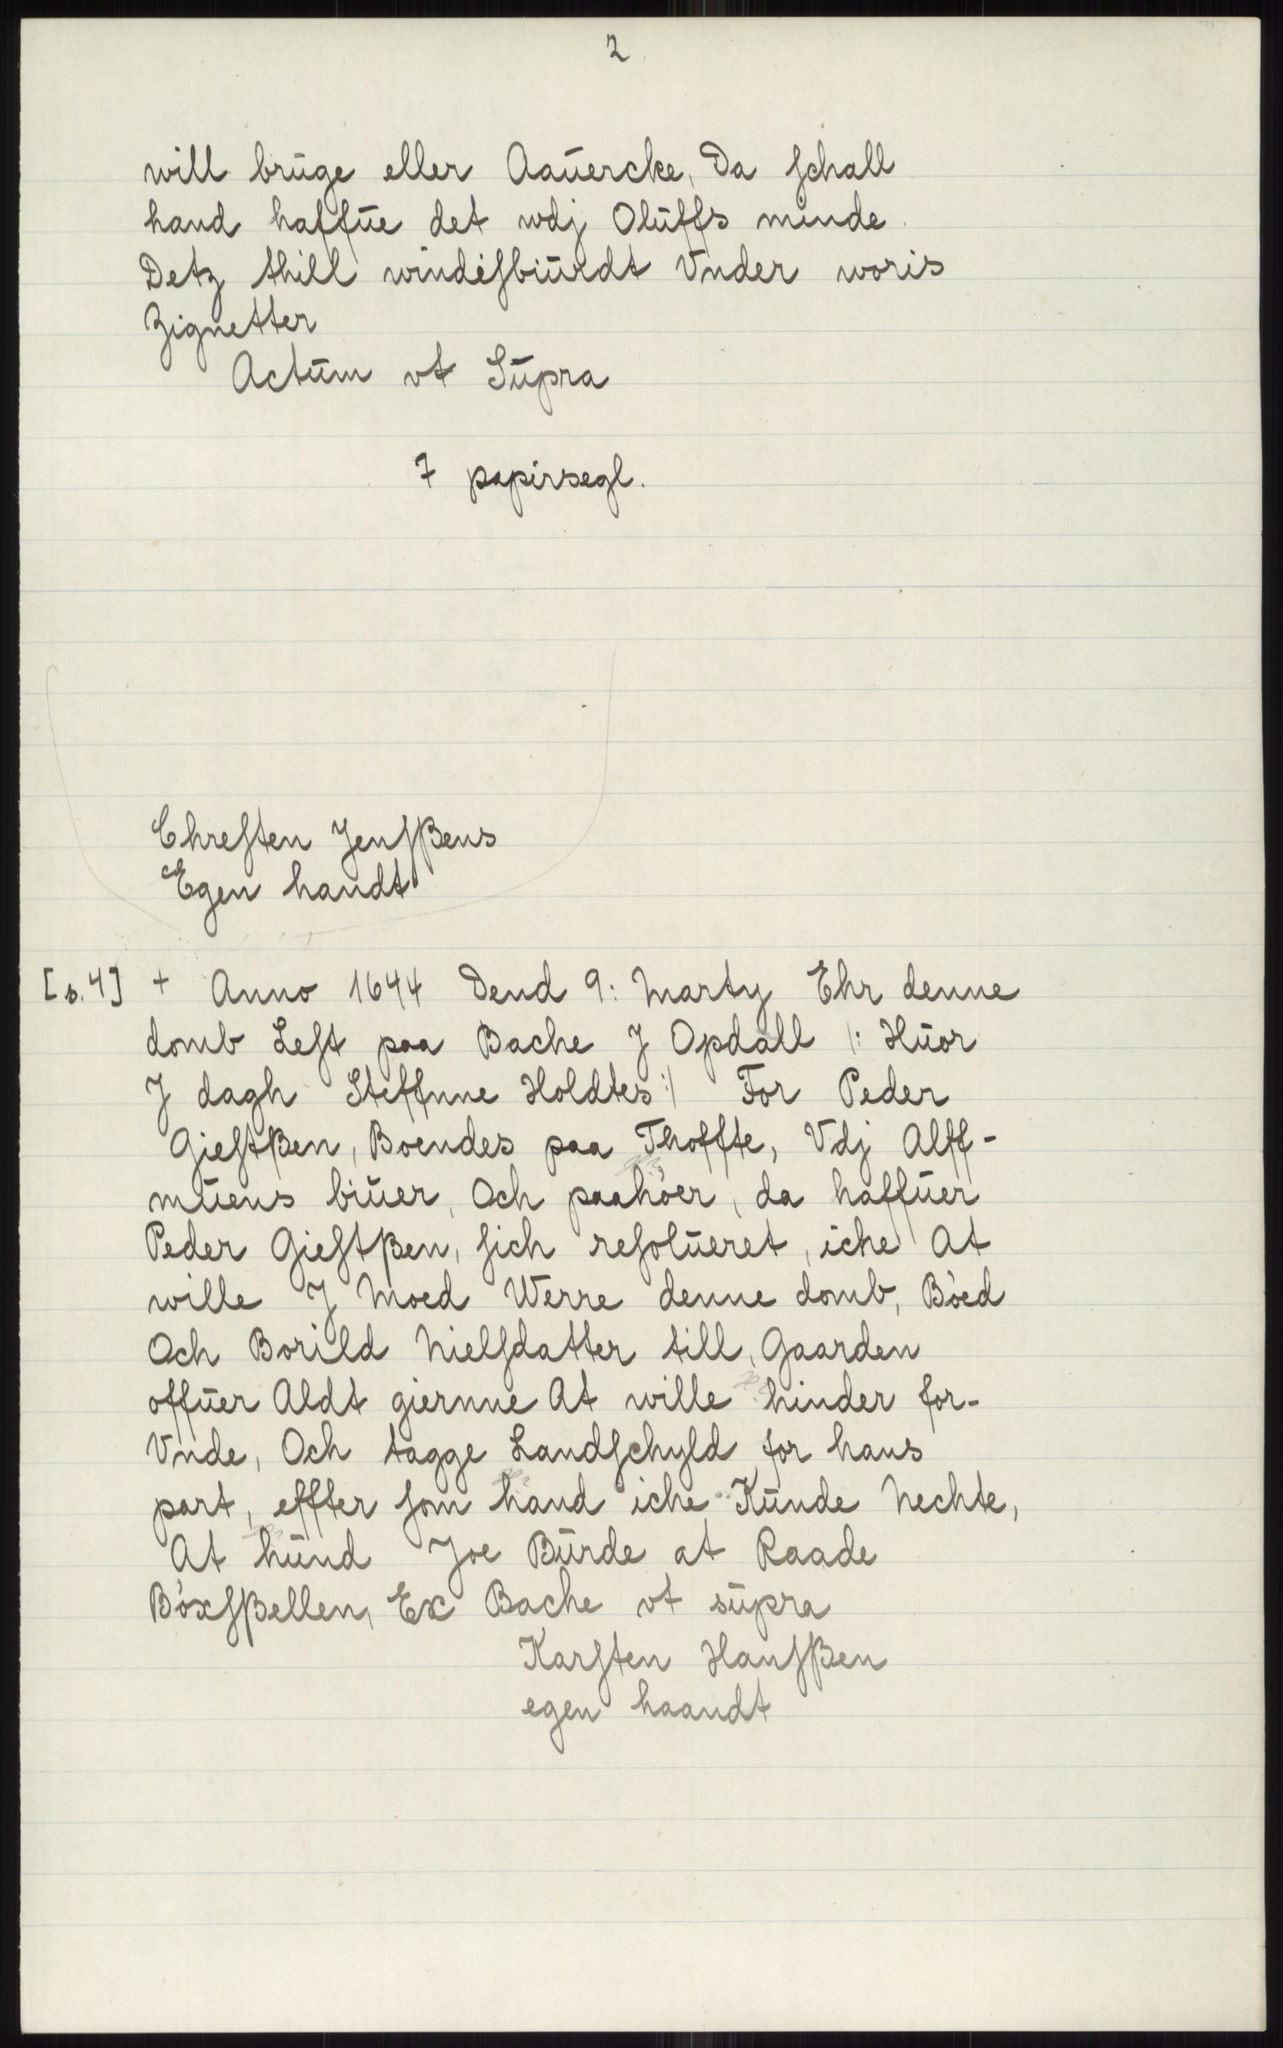 2
will brüge eller Aaüercke, Da ſchall
hand haffüe det wdj Olüffs minde
Detz thill windeſbiürdt Vnder woris
Zignetter
Actüm vt Süpra
7 papirsegl.
Chreſten Jenſßens
Egen handt
[s. 4] + Anno 1644 Dend 9: Marty Ehr denne
domb Leſt paa Bache J Opdall /: Hüor
J dagh Steffnne Holdtes :/ For Peder
Gieſtßen, Boendes paa Thoffte, Vdj Alff-
müens biüer, Och paahöer, da haffüer
Peder Gieſtßen, ſich reſolüeret, iche At
wille J Moed Werre denne domb, Böed
Och Borild Nielſdatter till, Gaarden
offüer Aldt giernne At wille hinder for-
Vnde, Och tagge Landſchyld for hans
part, effter ſom hand iche Künde Nechte,
At hünd Joe Bürde at Raade
Böxſßellen, Ex Bache vt süpra
Karſten Hanſßen
egen haandt